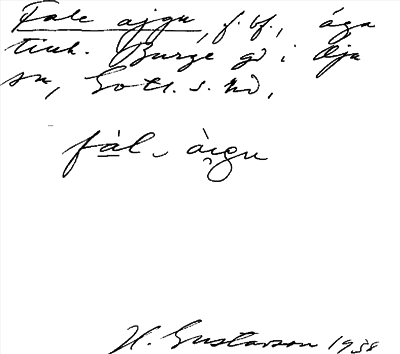 Fale ajgu, f. bf., äga
tink. Burge gd i Öja
sn, Gotl. s. hd,
fàl ajgu
H. Gustavson 1938